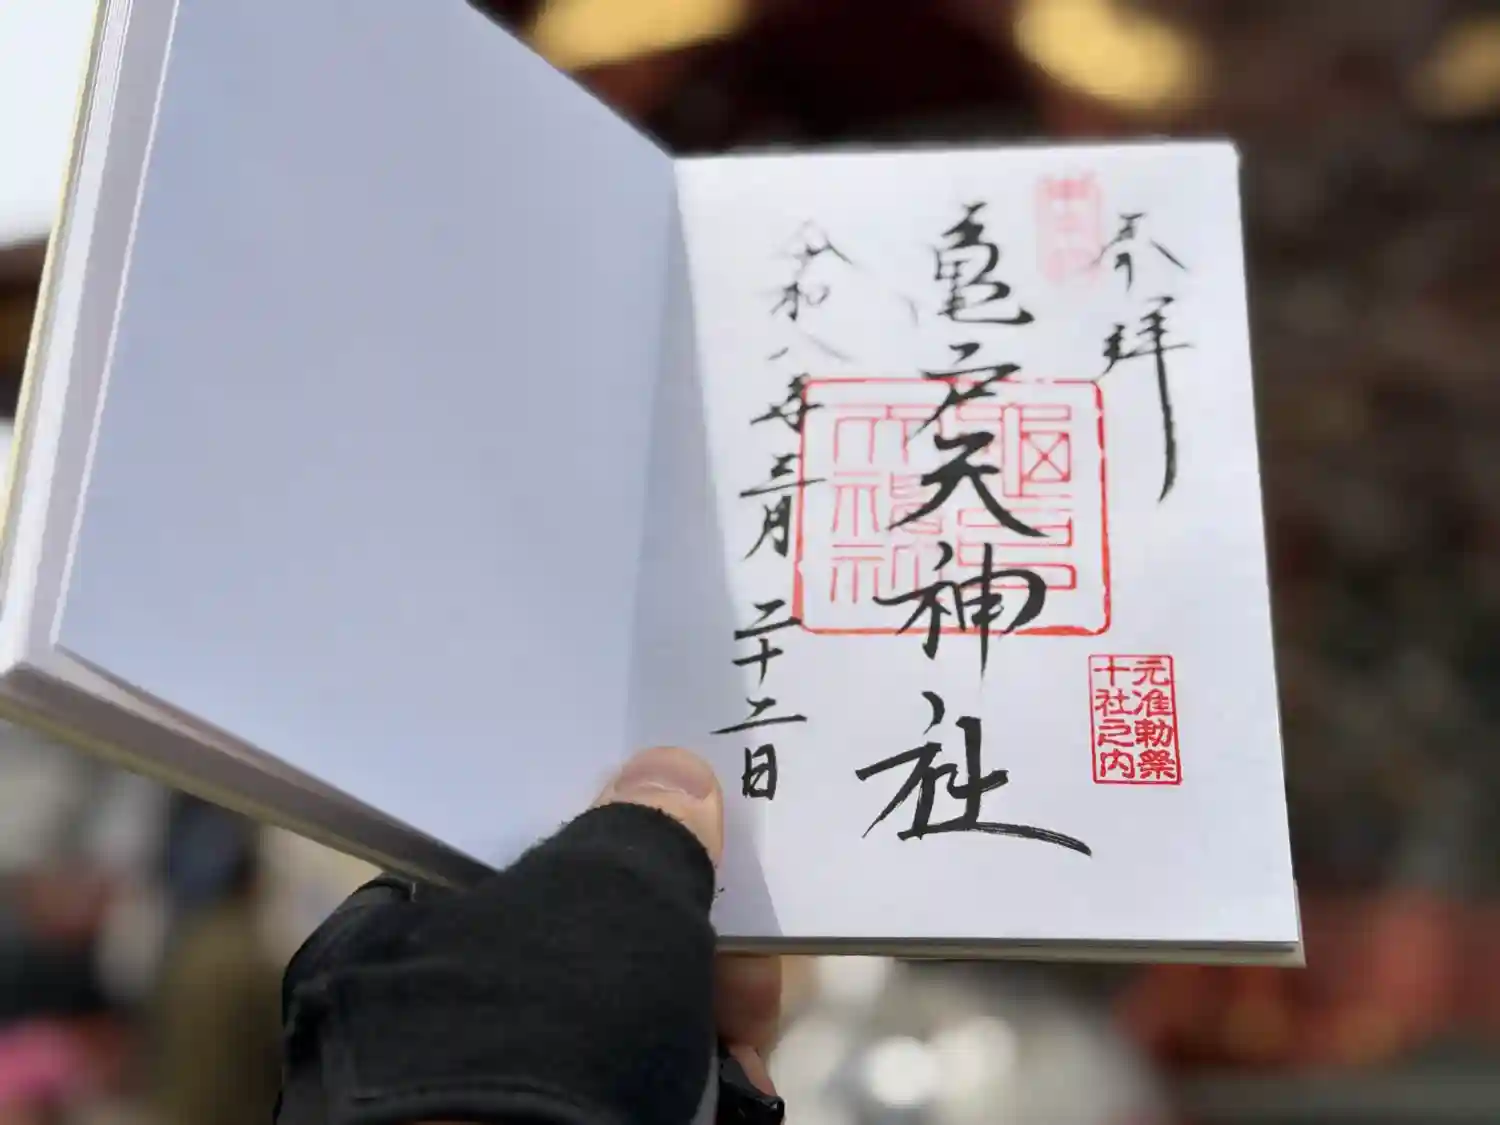 奉拝
亀戸天神社
令和八年三月二十二日
元准勅祭
十社之内